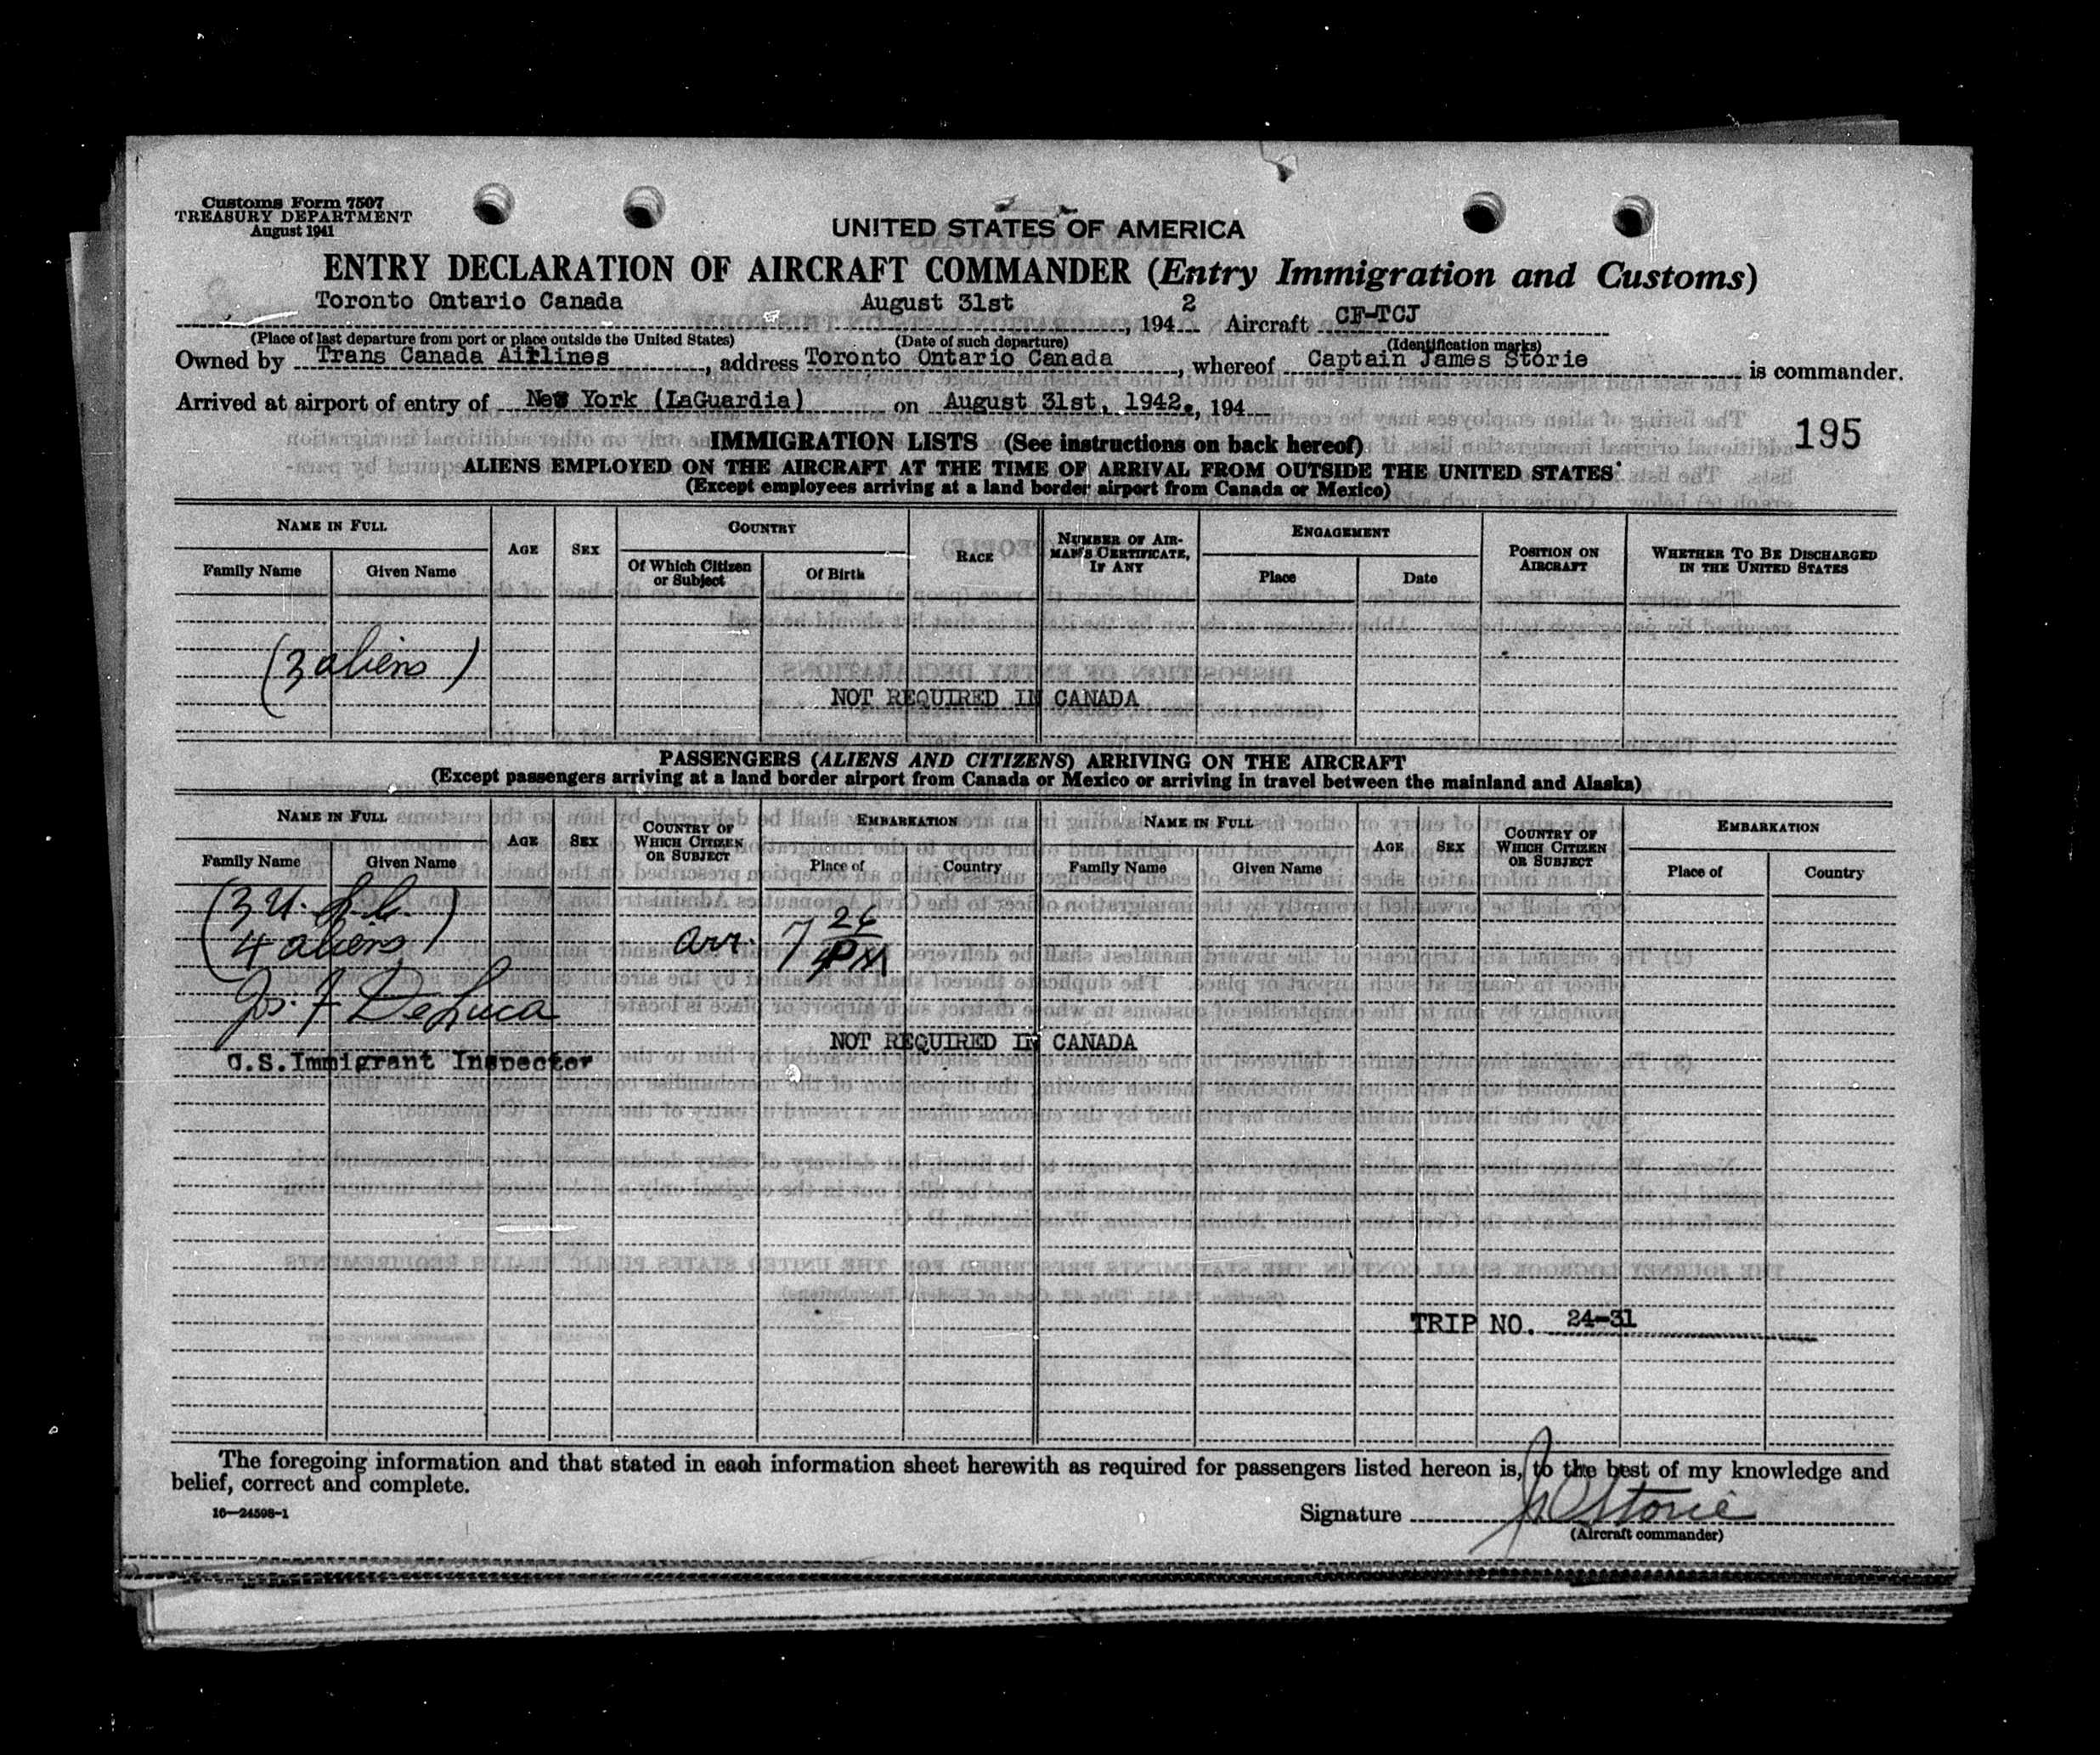 Customs Form 7507
TREASURY DEPARTMENT
August 1941
UNITED STATES OF AMERICA
ENTRY DECLARATION OF AIRCRAFT COMMANDER (Entry Immigration and Customs)
Toronto Ontario Canada August 31st, 1942 Aircraft CF-TCJ
(Place of last departure from port or place outside the United States) (Date of such departure) (Identification marks)
Owned by Trans Canada Airlines, address Toronto Ontario Canada, whereof Captain James Storie is commander.
Arrived at airport of entry of New York (LaGuardia) on August 31st, 1942., 194
195
IMMIGRATION LISTS (See instructions on back hereof)
ALIENS EMPLOYED ON THE AIRCRAFT AT THE TIME OF ARRIVAL FROM OUTSIDE THE UNITED STATES
(Except employees arriving at a land border airport from Canada or Mexico)
NAME IN FULL AGE SEX COUNTRY RACE NUMBER OF AIRMAN'S CERTIFICATE, IF ANY ENGAGEMENT POSITION ON AIRCRAFT WHETHER TO BE DISCHARGED IN THE UNITED STATES
Family Name Given Name Of Which Citizen or Subject Of Birth Place Date
(3 aliens)
NOT REQUIRED IN CANADA
PASSENGERS (ALIENS AND CITIZENS) ARRIVING ON THE AIRCRAFT
(Except passengers arriving at a land border airport from Canada or Mexico or arriving in travel between the mainland and Alaska)
NAME IN FULL AGE SEX COUNTRY OF WHICH CITIZEN OR SUBJECT EMBARKATION NAME IN FULL AGE SEX COUNTRY OF WHICH CITIZEN OR SUBJECT EMBARKATION
Family Name Given Name Place of Country Family Name Given Name Place of Country
(3 U.S.C.
4 aliens) arr. 7 26 PM
Jos. F DeLuca
NOT REQUIRED IN CANADA
U.S. Immigrant Inspector
TRIP NO. 24-31
The foregoing information and that stated in each information sheet herewith as required for passengers listed hereon is, to the best of my knowledge and
belief, correct and complete.
16—24508-1
Signature Storie
(Aircraft commander)